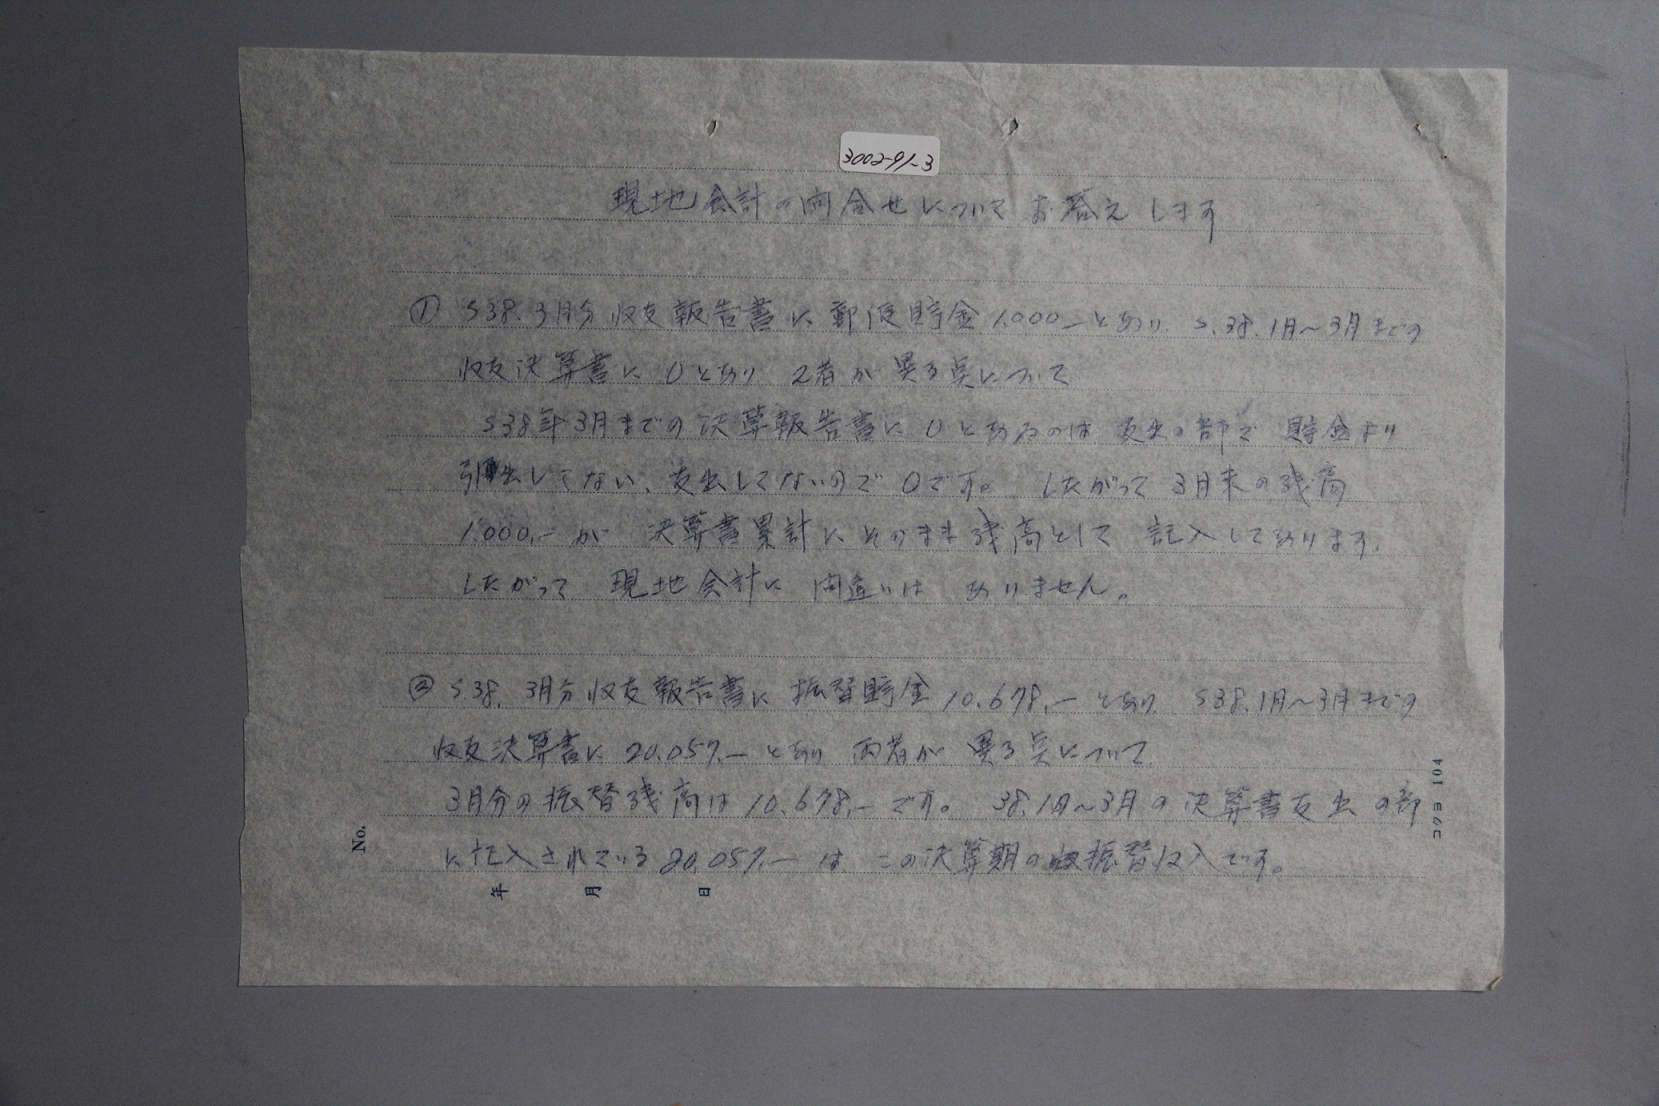 3002-91-3
現地会計の問合せについてお答えします
① S38.3月分収支報告書に郵便貯金1.000-とあり S.38.1月～3月までの
収支決算書に0とあり 2者が異る点について
S38年3月までの決算報告書に0とあるのは支出の部で貯金より
引出してない、支出してないので0です。したがって3月末の残高
1.000.-が 決算書累計にそのまま残高として 記入してあります。
したがって 現地会計に 間違いは ありません。
② S.38.3月分収支報告書に振替貯金10.678.-とあり S38.1月～3月までの
収支決算書に20.057.-とあり 両者が異る点について
3月分の振替残高は10.678.-です。38.1月～3月の決算書支出の部
に記入されている20.057.-は この決算期の振替収入です。
No.
年 月 日
コクヨ 104